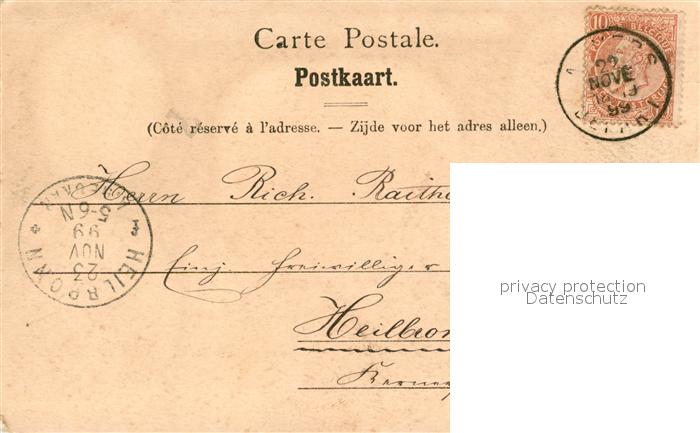 Carte Postale.
Postkaart.
(Côté réservé à l'adresse. — Zijde voor het adres alleen.)
10
POSTE BELGIQUE
22
NOVE
99
Herrn Rich. Raithe
Einj. Freiwilliger
Heilbron
HEILBRONN
23
NOV
99
5-6N
privacy protection
Datenschutz